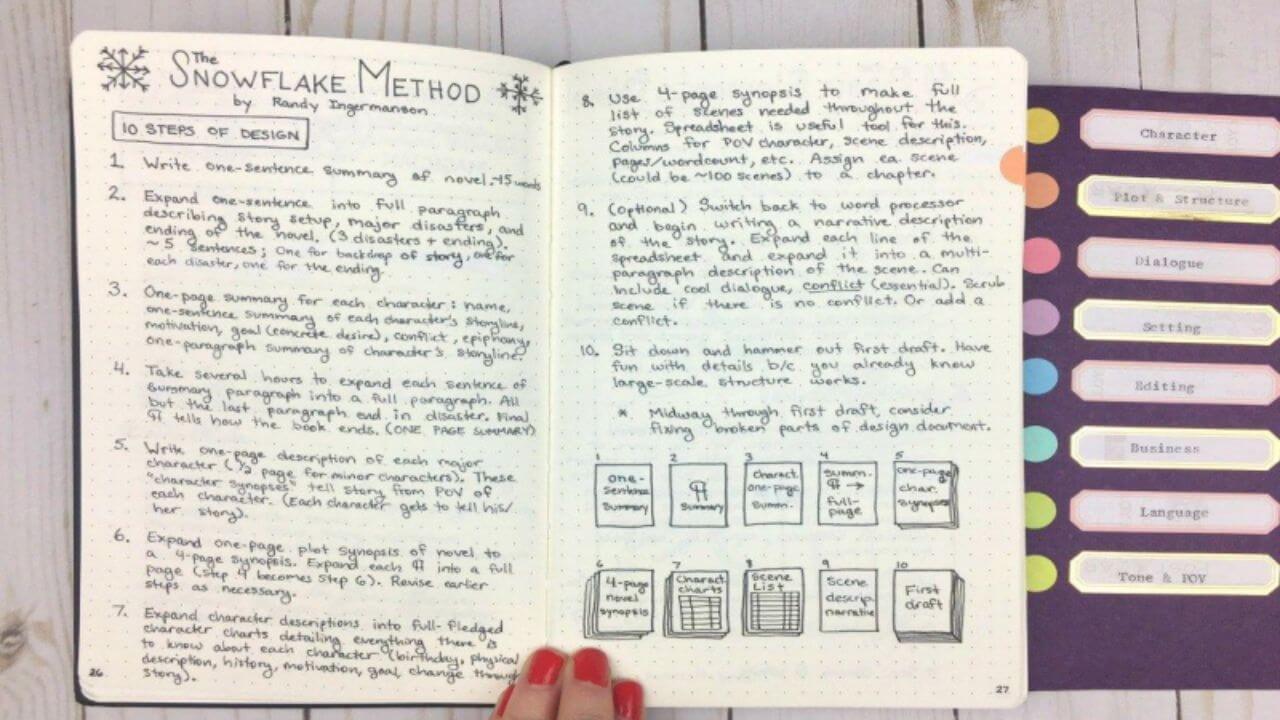 The
SNOWFLAKE METHOD
by Randy Ingermanson
10 STEPS OF DESIGN
1. Write one-sentence summary of novel. ~15 words
2. Expand one-sentence into full paragraph
describing story setup, major disasters, and
ending of the novel. (3 disasters + ending).
~ 5 sentences; One for backdrop of story, one for
each disaster, one for the ending.
3. One-page summary for each character: name,
one-sentence summary of each character's storyline,
motivation, goal (concrete desire), conflict, epiphany,
one-paragraph summary of character's storyline.
4. Take several hours to expand each sentence of
summary paragraph into a full paragraph. All
but the last paragraph end in disaster. Final
¶ tells how the book ends. (ONE PAGE SUMMARY)
5. Write one-page description of each major
character (1/2 page for minor characters). These
"character synopses" tell story from POV of
each character. (Each character gets to tell his/
her story).
6. Expand one-page plot synopsis of novel to
a 4-page synopsis. Expand each ¶ into a full
page (step 4 becomes step 6). Revise earlier
steps as necessary.
7. Expand character descriptions into full-fledged
character charts detailing everything there is
to know about each character (birthday, physical
description, history, motivation, goal, change through
story).
26
8. Use 4-page synopsis to make full
list of scenes needed throughout the
story. Spreadsheet is useful tool for this.
Columns for POV character, scene description,
pages/wordcount, etc. Assign ea. scene
(could be ~100 scenes) to a chapter.
9. (Optional) Switch back to word processor
and begin writing a narrative description
of the story. Expand each line of the
spreadsheet and expand it into a multi-
paragraph description of the scene. Can
include cool dialogue, conflict (essential). Scrub
scene if there is no conflict. Or add a
conflict.
10. Sit down and hammer out first draft. Have
fun with details b/c you already know
large-scale structure works.
* Midway through first draft, consider
fixing broken parts of design document.
1
one-
sentence
summary
2
¶
summary
3
charact.
one-page
summ.
4
summ.
¶ →
full-
page
5
one-page
char.
synopses
6
4-page
novel
synopsis
7
Charact.
charts
8
Scene
List
9
Scene
descrip.
narrative
10
First
draft
27
Character
Plot & Structure
Dialogue
Setting
Editing
Business
Language
Tone & POV